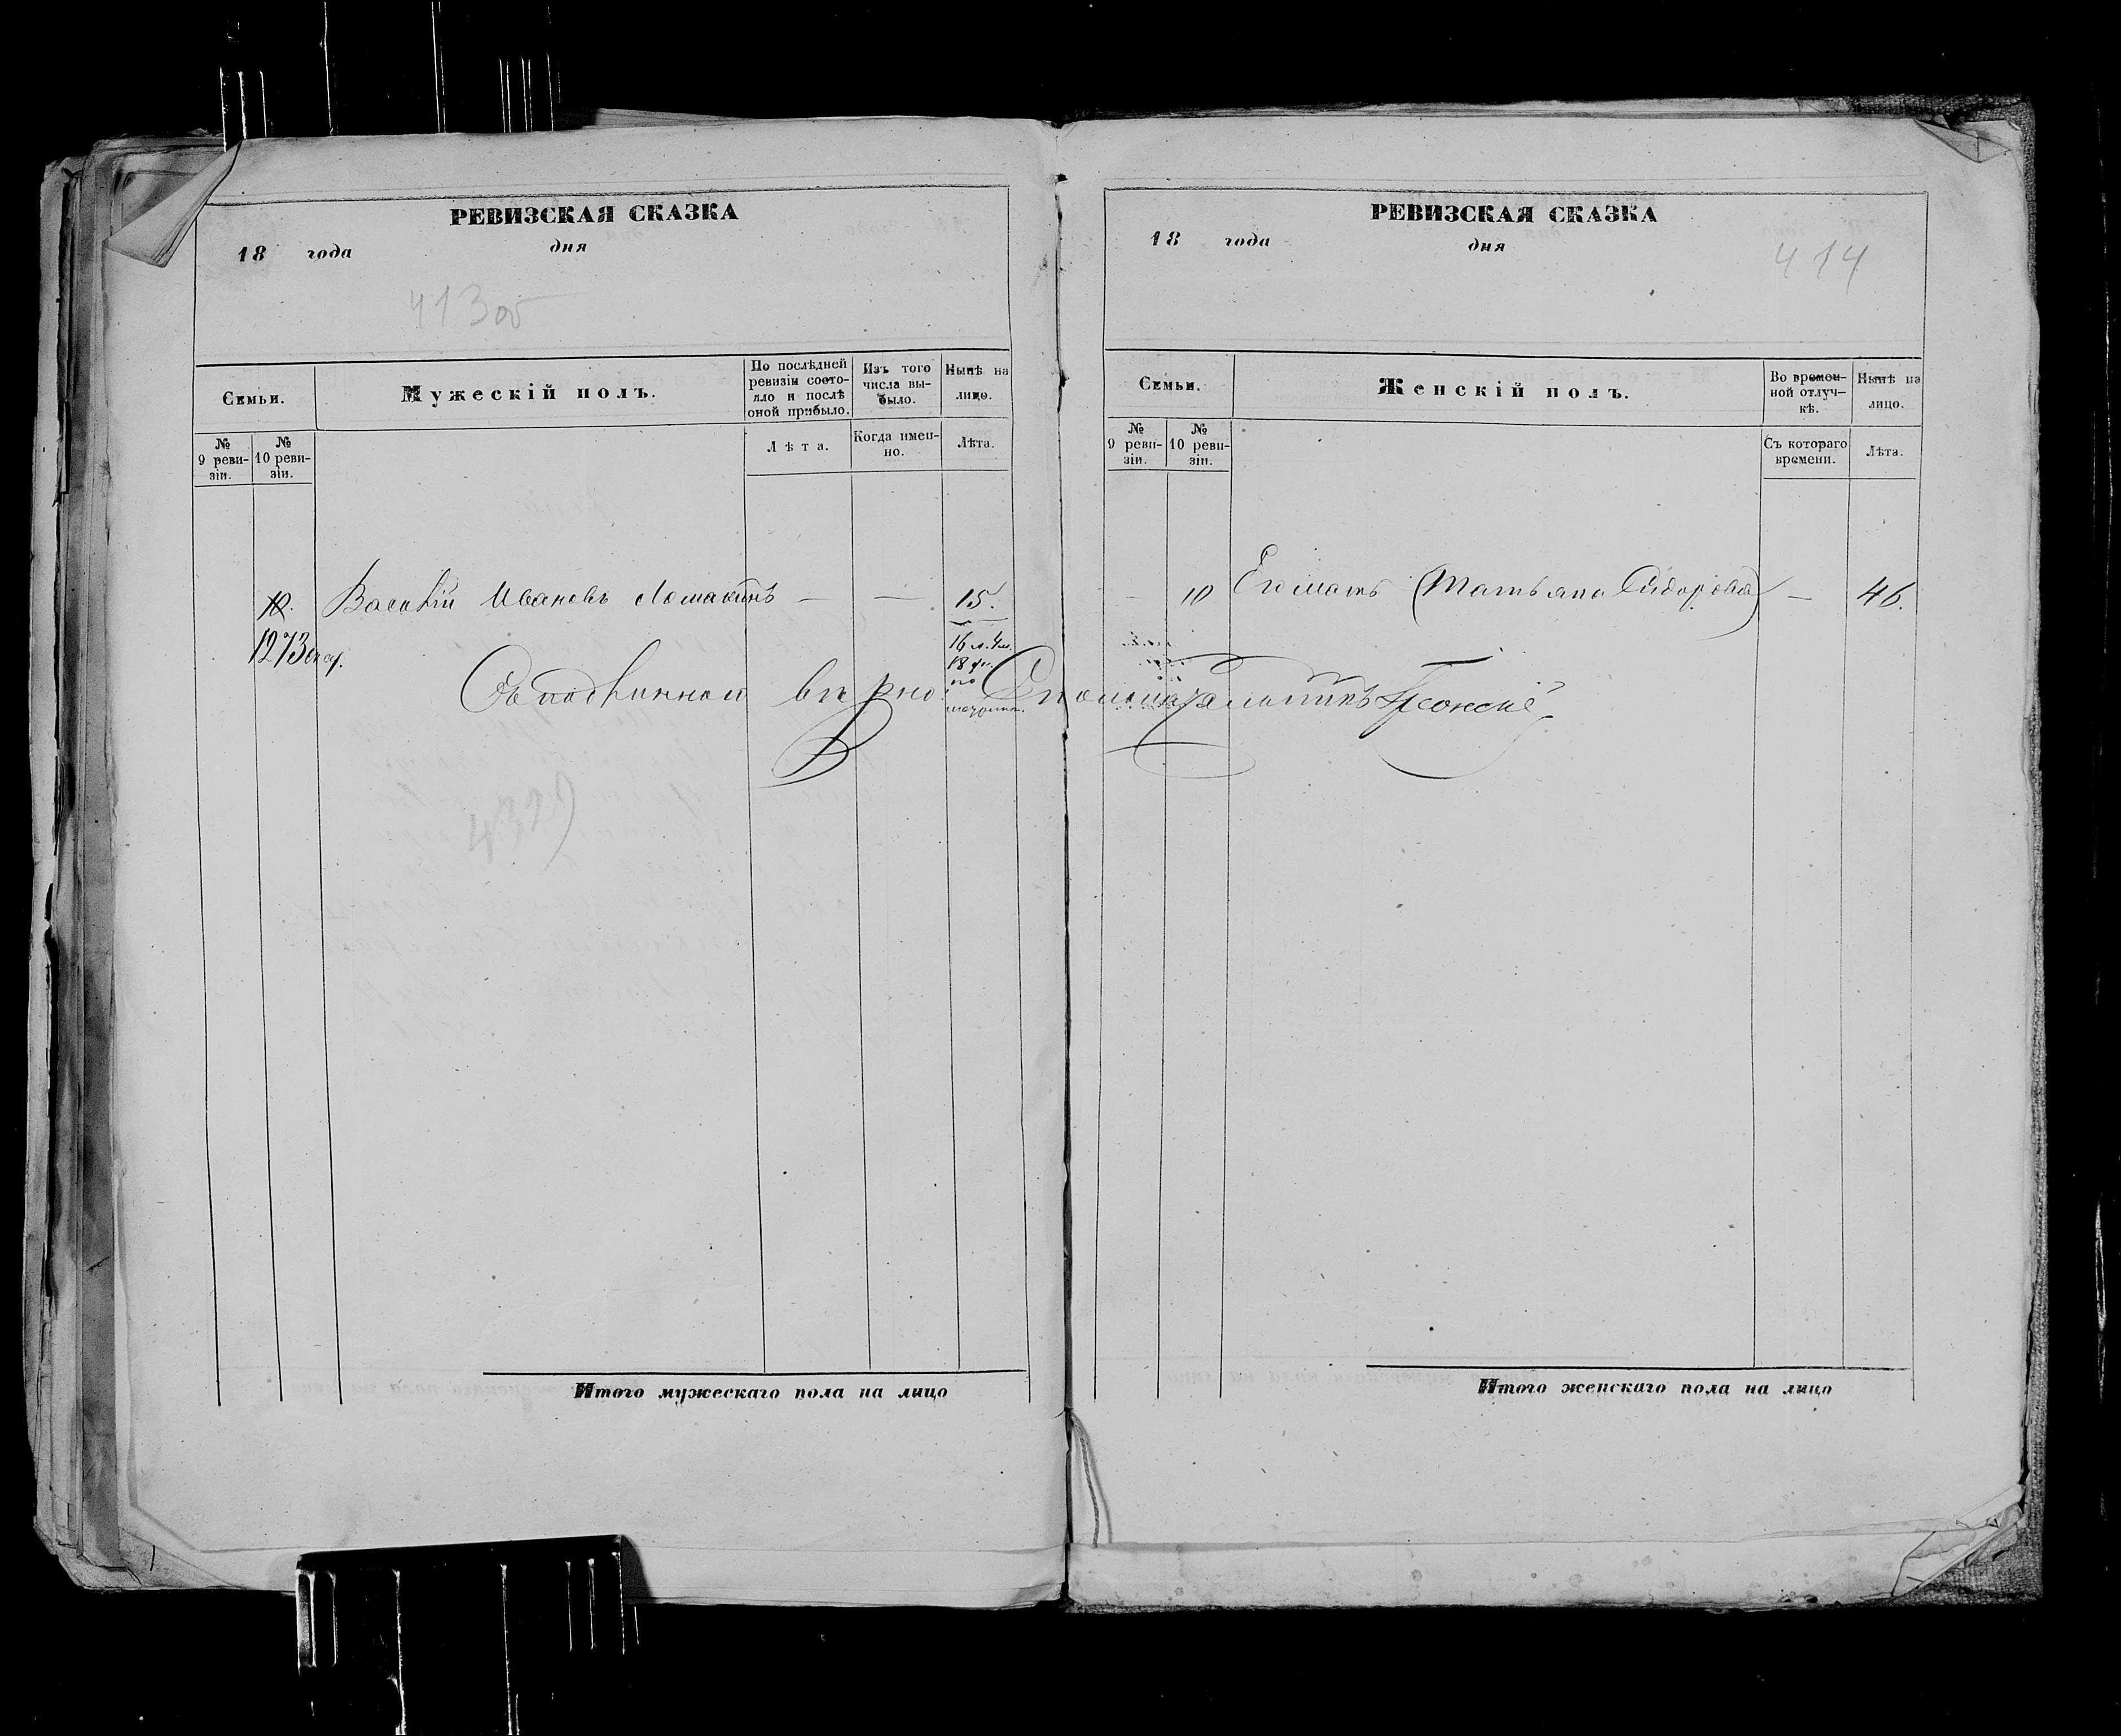 РЕВИЗСКАЯ СКАЗКА
18 года дня
413 об
Семьи.
Мужескiй полъ.
По послѣдней ревизiи состояло и послѣ оной прибыло.
Изъ того числа выбыло.
Нынѣ на лицо.
№ 9 ревизiи.
№ 10 ревизiи.
Лѣта.
Когда именно.
Лѣта.
10. Василiй Ивановъ Ломакинъ — — 15.
1273
16 л. 4 м.
18
по
Съ подлиннымъ вѣрно
4329
Итого мужескаго пола на лицо
РЕВИЗСКАЯ СКАЗКА
18 года дня
414
Семьи.
Женскiй полъ.
Во временной отлучкѣ.
Нынѣ на лицо.
№ 9 ревизiи.
№ 10 ревизiи.
Съ котораго времени.
Лѣта.
— 10 Его мать (Татьяна Сидорова) — 46.
Итого женскаго пола на лицо